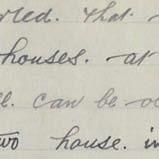 that
houses. at
can be
two house. in